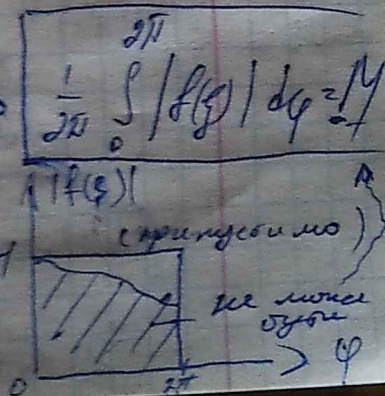 1/2π ∫₀^2π |f(ξ)| dφ = M
|f(ξ)|
(припустимо)
не може
бути
φ
0 2π